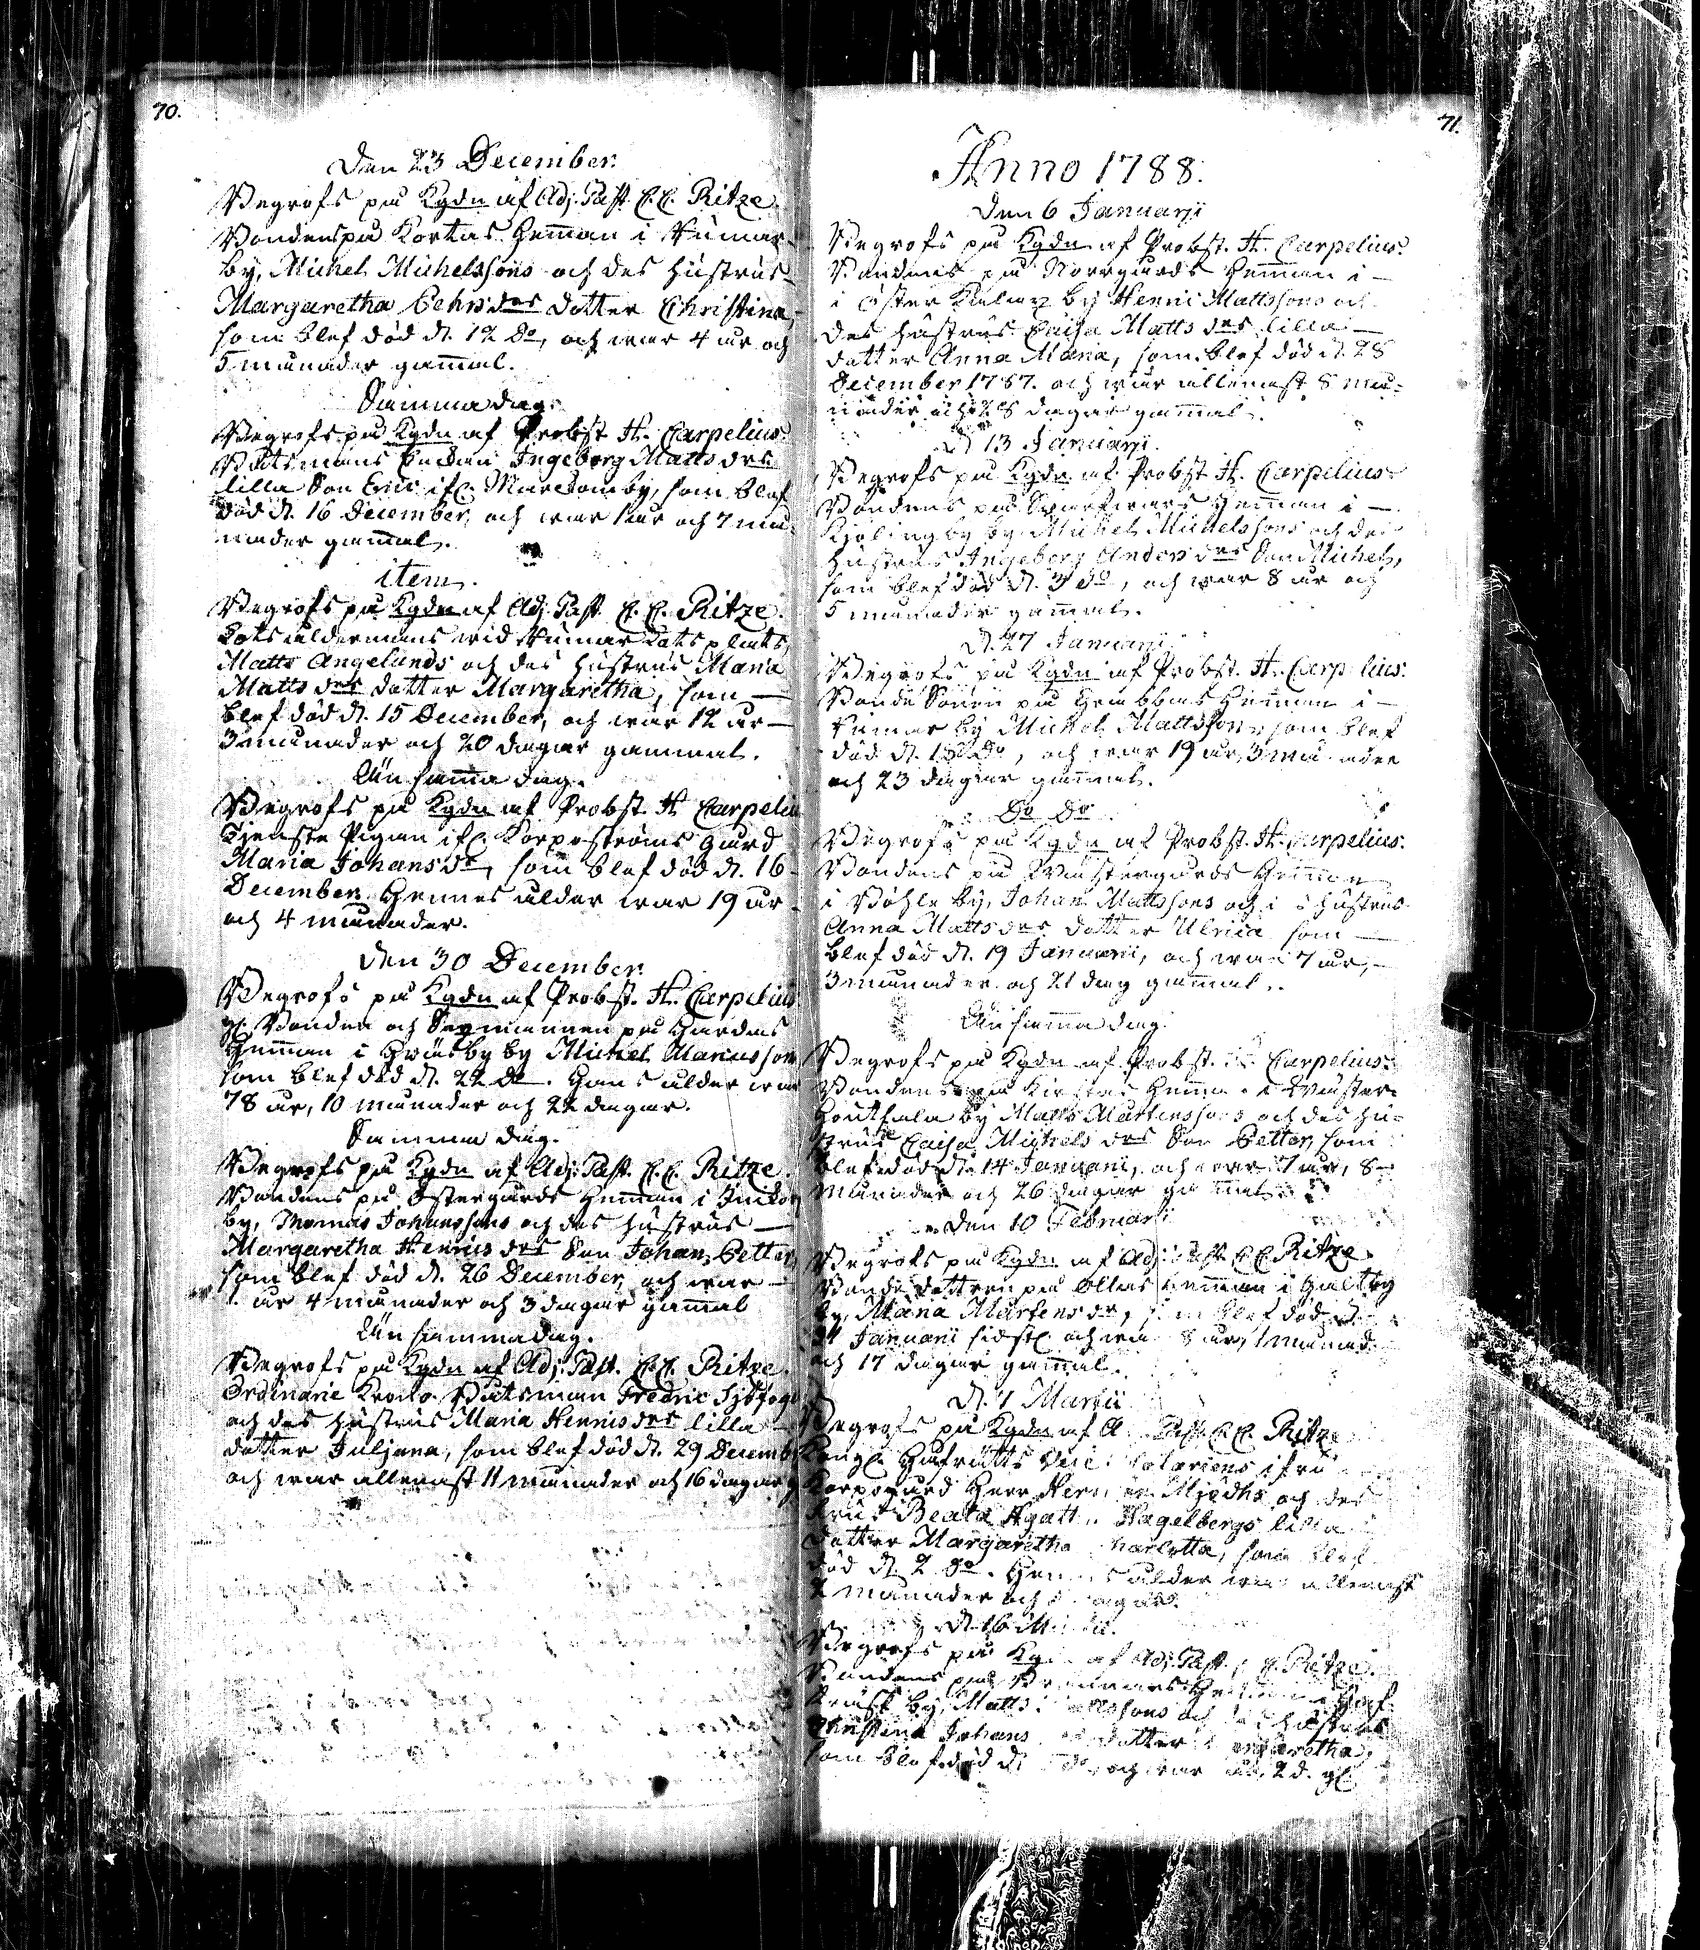 70.
Den 23 December.
Begrofs på Kgdn af Adj. Past. E. E. Ritze
Bondens på Kortas Hemman i Wimar
by, Michel Michelssons och des hustrus
Margaretha Pehrs drs dotter Christina,
som blef död d. 12 do, och war 4 år och
5 månader gammal.
Samma dag.
Begrofs på Kgdn af Probst H. Carpelius
Båtsmans Enkan Ingeborg Matts drs
lilla Son Eric ifr. Marsomby, som blef
död d. 16 December, och war 1 år och 7 må-
nader gammal.
item.
Begrofs på Kgdn af Adj. Past. E. E. Ritze
Lots åldermans wid Wimar Lots plats,
Matts Angelunds och des hustrus Maria
Matts drs dotter Margaretha, som
blef död d. 15 December, och war 12 år
3 månader och 20 dagar gammal.
Än samma dag.
Begrofs på Kgdn af Probst H. Carpeliu
Tjenste Pigan ifr. Korpoströms gård
Maria Johans dr, som blef död d. 16
December. Hennes ålder war 19 år
och 4 månader.
Den 30 December.
Begrofs på Kgdn af Probst. H. Carpelius
gl. Bonden och Sexmannen på
Hemman i by Michel
som blef död d. 22 do. Hans ålder war
78 år, 10 månader och 22 dagar.
Samma dag.
Begrofs på Kgdn af Adj. Past. E. E. Ritze.
Bondens på Östergårds Hemman i
by, Thomas Johanssons och des hustrus
Margaretha Henrics drs Son Johan Petter,
som blef död d. 26 December, och war
1 år 4 månader och 3 dagar gammal
Än samma dag.
Begrofs på Kgdn af Adj. Past. E. E. Ritze.
Ordinarie Båtsman Fredric
och des hustrus Maria Henrics drs lilla
dotter Juljana, som blef död d. 29 Decemb
och war allenast 11 månader och 16 dagar g
71.
Anno 1788.
Den 6 Januarii
Begrofs på Kgdn af Probst. H. Carpelius.
Bondens på Norrgårds Hemman i
i Öster by Henric Mattssons och
des hustrus Caisa Matts drs lilla
dotter Anna Maria, som blef död d. 28
December 1787. och war allenast 8 må-
nader och 28 dagar gammal.
d. 13 Januarii.
Begrofs på Kgdn af Probst H. Carpelius
Bondens på Hemman i
by Michel Michelssons och des
hustrus Ingeborg Anders drs Son Michel,
som blef död d. 3 do, och war 8 år och
5 månader gammal.
D. 27 Januarii
Begrofs på Kgdn af Probst. H. Carpelius.
Bonde Sonen på Hemman i
Wimar by Michel Mattsson, som blef
död d. do, och war 19 år, 3 månader
och 23 dagar gammal.
Do Do
Begrofs på Kgdn af Probst. H. Carpelius.
Bondens på Wästergårds Hemman
i Böhle by, Johan Mattssons och des hustrus
Anna Matts drs dotter Ulrica som
blef död d. 19 Januarii, och war 7 år,
3 månader och 21 dag gammal.
Än samma dag.
Begrofs på Kgdn af Probst. H. Carpelius.
Bondens på Hemman i Wäster
by Matts Martenssons och des hu-
strus Caisa Michels drs Son Petter, som
blef död d. 14 Januarii, och war 7 år, 8
månader och 26 dagar gammal.
Den 10 Februarii
Begrofs på Kgdn af Adj. Past. E. E. Ritze.
Bonde dottren på Ollas Hemman i Galtby
by, Maria Martens dr, som blef död d.
Januarii sidstl. och war 8 år, 1 månad
och 17 dagar gammal.
D. 1 Martii
Begrofs på Kgdn af Adj. Past. E. E. Ritze
Kongl. Hofrätts ifrån
Korpogård Herr och des
fru Beata Hagelbergs lilla
dotter Margaretha Charlotta, som blef
död d. 2 do. Hennes ålder war allenast
2 månader och dagar.
d. 16 Martii.
Begrofs på Kgdn af Adj. Past. E. E. Ritze.
Bondens på Hemman i
by, Matts och des hustrus
Christina Johans dotter Margaretha,
som blef död d. och war 2 d. gl.